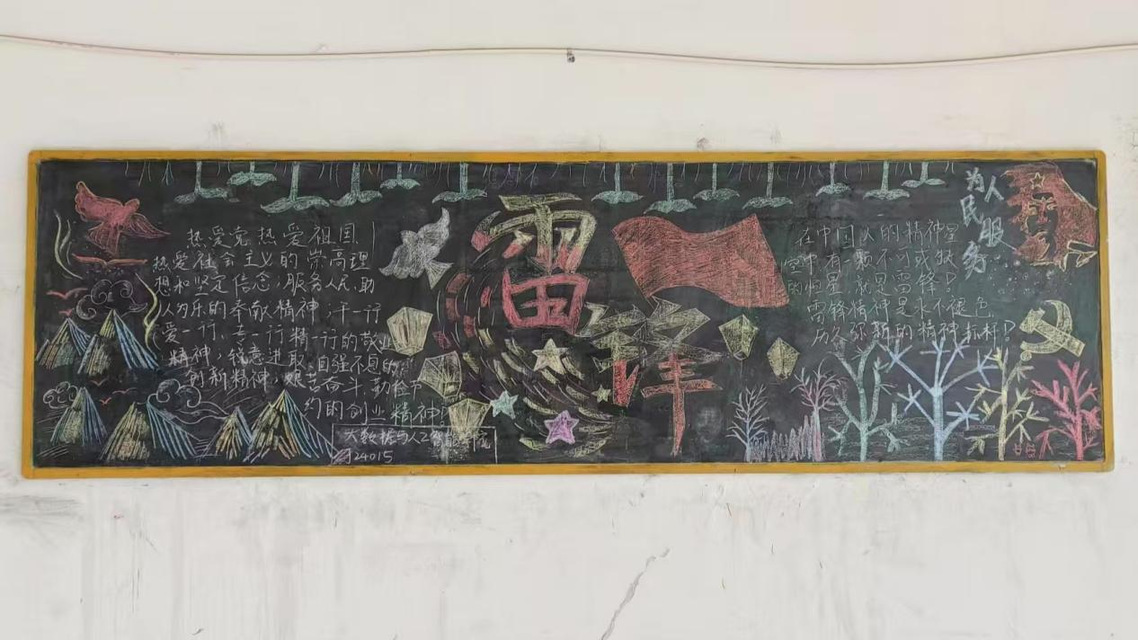 热爱党 热爱祖国
热爱社会主义的崇高理
想和坚定信念,服务人民,助
人为乐的奉献精神,干一行
爱一行、专一行精一行的敬业
精神,锐意进取、自强不息的
创新精神,艰苦奋斗,勤俭节
约的创业精神!
大数据与人工智能学院
24015
雷
锋
在中国人的精神星
空中有一颗不可或缺
的恒星,就是雷锋!
雷锋精神是永不褪色
历久弥新的精神标杆!
为人
民服
务